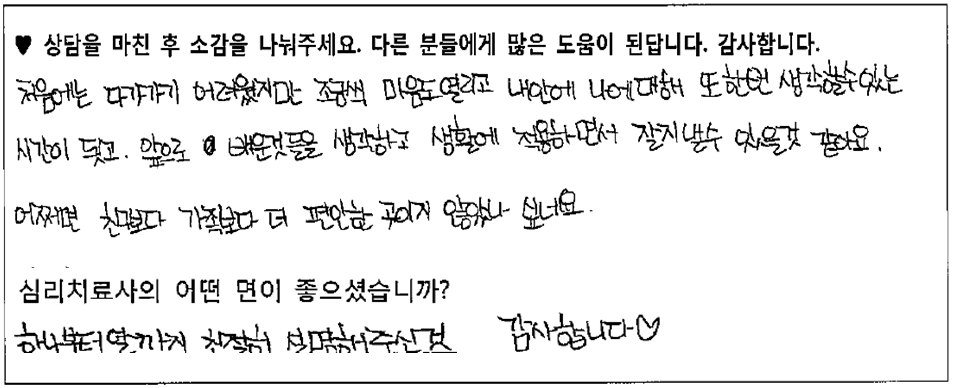 ♥ 상담을 마친 후 소감을 나눠주세요. 다른 분들에게 많은 도움이 된답니다. 감사합니다.
처음에는 다가가기 어려웠지만 조금씩 마음도 열리고 내안에 나에대해 또한번 생각할수있는
시간이 됫고. 앞으로 배운것들을 생각하고 생활에 적용하면서 잘지낼수 있을것 같아요.
어쩌면 친구보다 가족보다 더 편안한 곳이지 않았나 싶네요.
심리치료사의 어떤 면이 좋으셨습니까?
하나부터열까지 친절히 설명해주신것 감사합니다♡